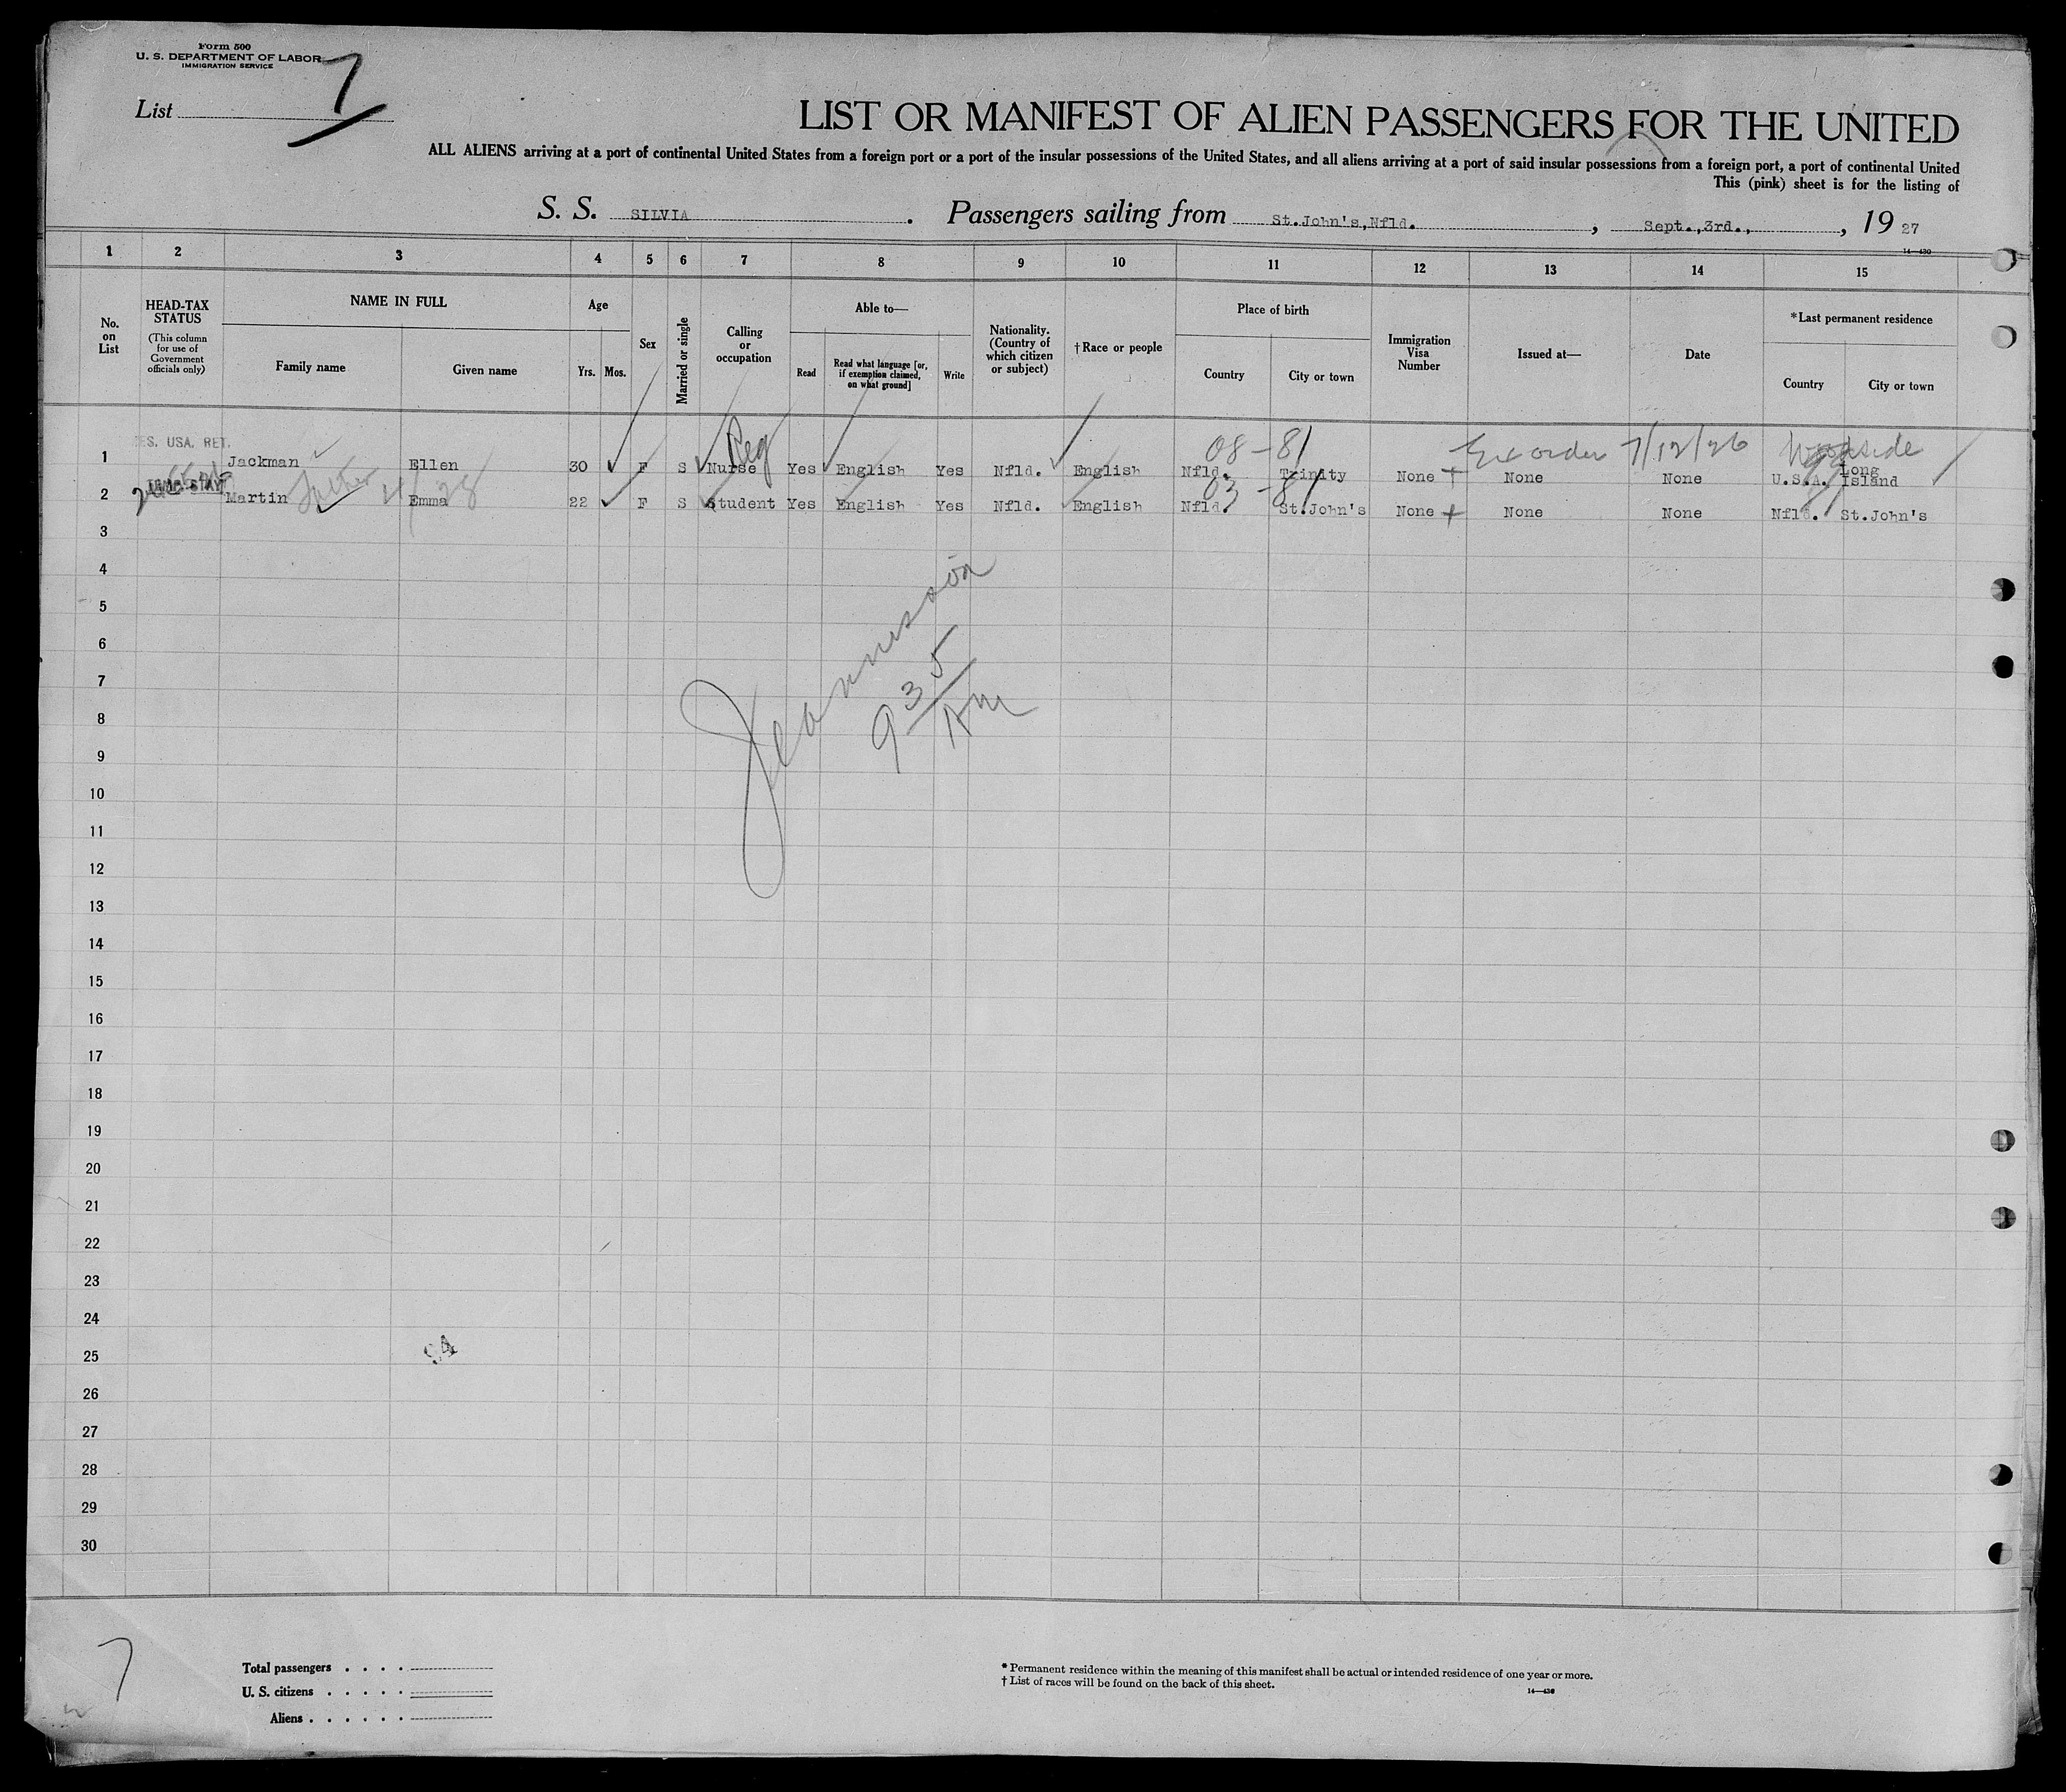 Form 500
U. S. DEPARTMENT OF LABOR
IMMIGRATION SERVICE
List 7
LIST OR MANIFEST OF ALIEN PASSENGERS FOR THE UNITED
ALL ALIENS arriving at a port of continental United States from a foreign port or a port of the insular possessions of the United States, and all aliens arriving at a port of said insular possessions from a foreign port, a port of continental United
This (pink) sheet is for the listing of
S. S. SILVIA. Passengers sailing from St.John's,Nfld., Sept.,3rd.,, 19 27
14—430
1 2 3 4 5 6 7 8 9 10 11 12 13 14 15
No. on List
HEAD-TAX STATUS
(This column for use of Government officials only)
NAME IN FULL
Family name
Given name
Age
Yrs. Mos.
Sex
Married or single
Calling or occupation
Able to—
Read
Read what language [or, if exemption claimed, on what ground]
Write
Nationality. (Country of which citizen or subject)
†Race or people
Place of birth
Country
City or town
Immigration Visa Number
Issued at—
Date
*Last permanent residence
Country
City or town
Reg 08-81 Ext order 7/12/26 Woodside
ES. USA. RET.
1 Jackman Ellen 30 F S Nurse Yes English Yes Nfld. English Nfld. Trinity None None None U.S.A. Long Island
03-81
2 Martin Emma 22 F S Student Yes English Yes Nfld. English Nfld. St.John's None None None Nfld. St.John's
3
4
5
6
7
8
9
10
11
12
13
14
15
16
17
18
19
20
21
22
23
24
25
26
27
28
29
30
9 35 AM
94
7
Total passengers
U. S. citizens
Aliens
* Permanent residence within the meaning of this manifest shall be actual or intended residence of one year or more.
† List of races will be found on the back of this sheet.
14—430